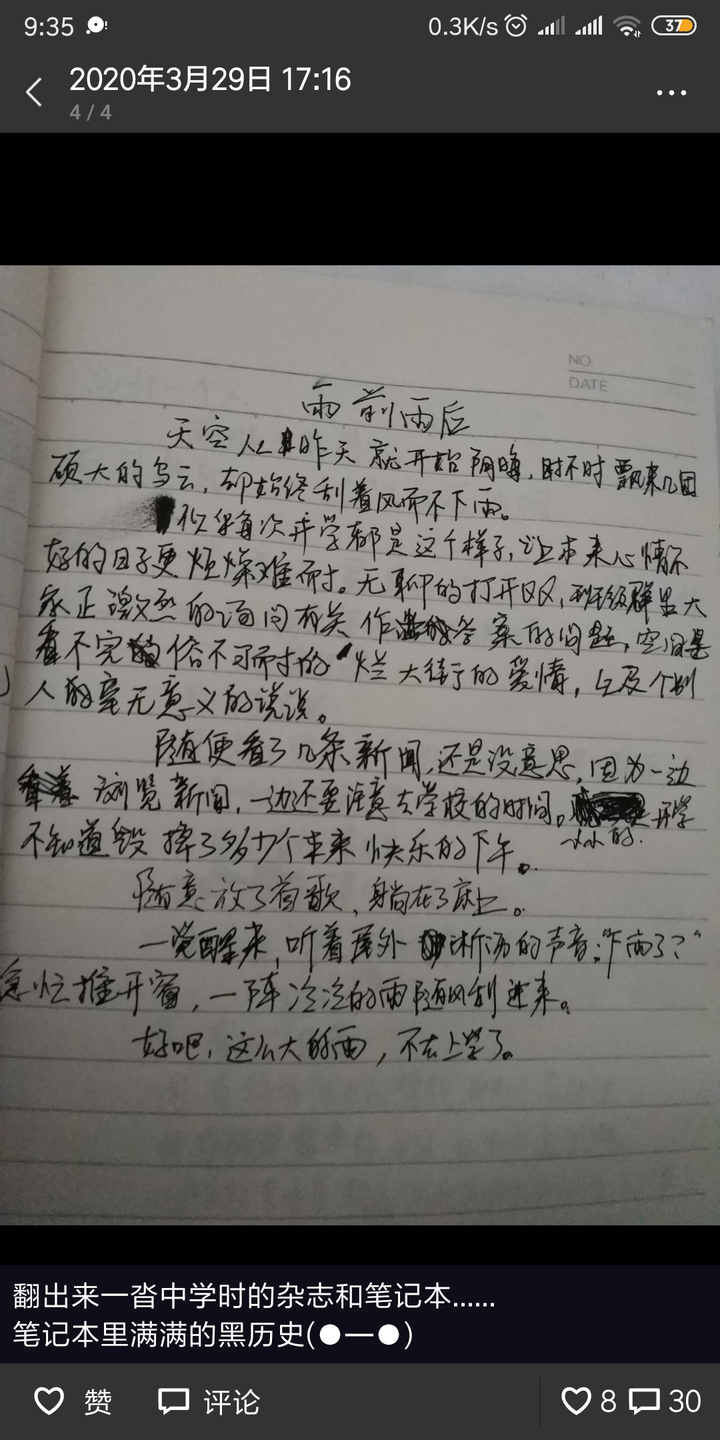 9:35
0.3K/s
37
2020年3月29日 17:16
4 / 4
NO.
DATE
雨前雨后
天空从昨天就开始阴晦,时不时飘来几团
硕大的乌云,却始终刮着风而不下雨。
似乎每次开学都是这个样子,让本来心情不
好的日子更烦燥难耐。无聊的打开QQ,班级群里大
家正激烈的询问有关作业答案的问题,空间是
看不完的俗不可耐的烂大街的爱情,以及个别
人的毫无意义的说说。
随便看了几条新闻,还是没意思,因为一边
浏览新闻,一边还要注意去学校的时间。开学
不知道毁掉了多少个本来快乐的下午。
随意放了首歌,躺在了床上。
一觉醒来,听着屋外淅沥的声音:“下雨了?”
急忙推开窗,一阵冷冷的雨随风刮进来。
好吧,这么大的雨,不去上学了。
翻出来一沓中学时的杂志和笔记本......
笔记本里满满的黑历史(●—●)
赞
评论
8
30